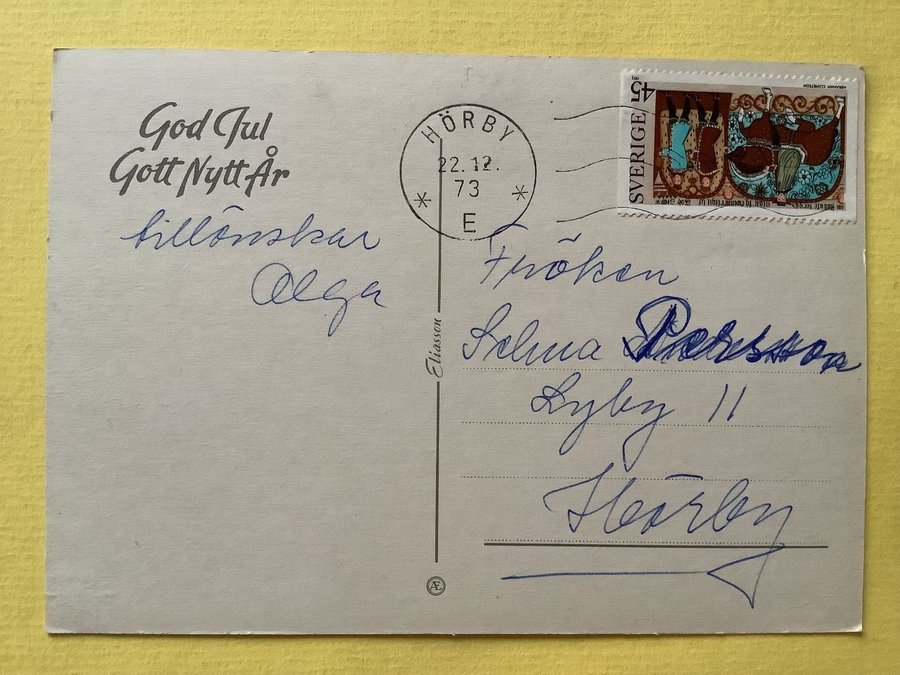 God Jul
Gott Nytt År
tillönskar
Olga
Eliasson
Æ
HÖRBY
22.12.
73
E
SVERIGE 45
Fröken
Selma Persson
Lyby 11
Hörby